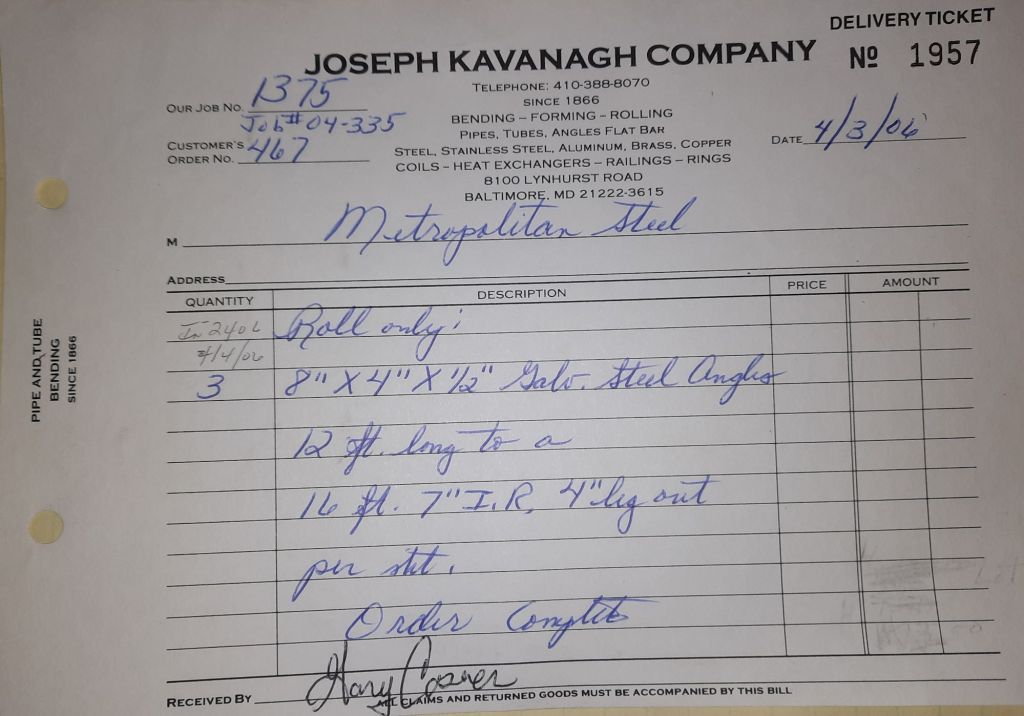 DELIVERY TICKET
JOSEPH KAVANAGH COMPANY
Nº 1957
TELEPHONE: 410-388-8070
SINCE 1866
OUR JOB NO. 1375
Job # 04-335
BENDING – FORMING – ROLLING
PIPES, TUBES, ANGLES FLAT BAR
CUSTOMER'S ORDER NO. 467
STEEL, STAINLESS STEEL, ALUMINUM, BRASS, COPPER
DATE 4/3/06
COILS – HEAT EXCHANGERS – RAILINGS – RINGS
8100 LYNHURST ROAD
BALTIMORE, MD 21222-3615
M Metropolitan Steel
ADDRESS
QUANTITY DESCRIPTION PRICE AMOUNT
Roll only:
4/4/06
3 8" X 4" X 1/2" Galv. Steel Angles
12 ft. long to a
16 ft. 7" I.R. 4" leg out
per
Order Complete
RECEIVED BY Gary
ALL CLAIMS AND RETURNED GOODS MUST BE ACCOMPANIED BY THIS BILL
PIPE AND TUBE
BENDING
SINCE 1866